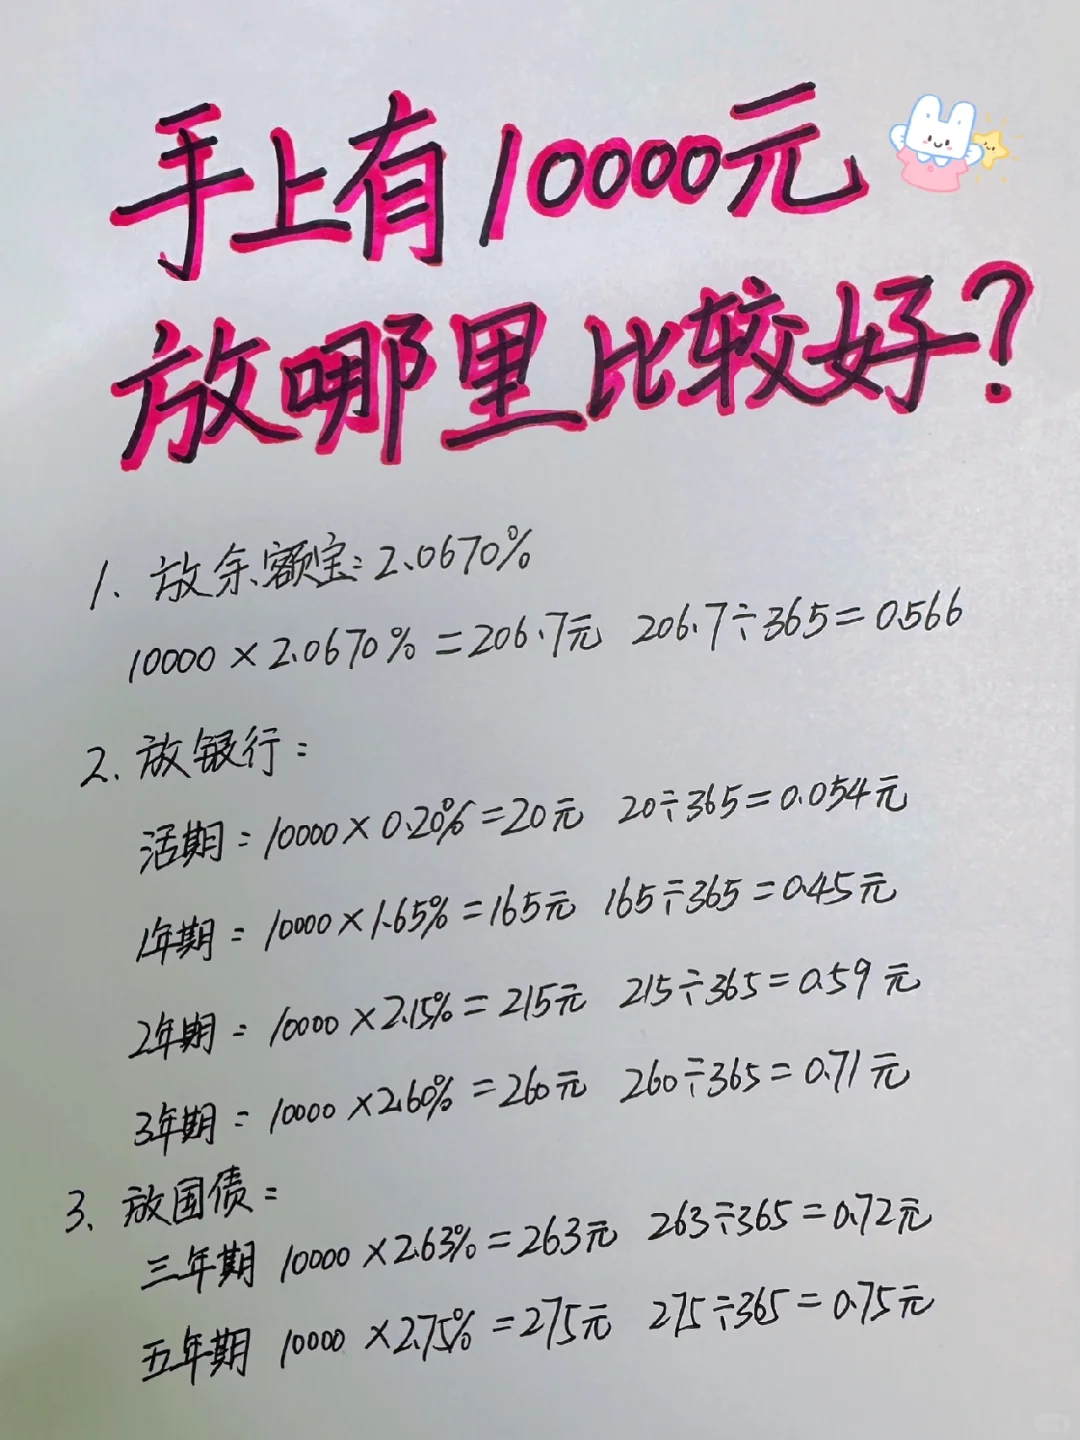 手上有10000元
放哪里比较好?
1. 放余额宝:2.0670%
10000×2.0670%=206.7元 206.7÷365=0.566
2. 放银行:
活期:10000×0.20%=20元 20÷365=0.054元
1年期:10000×1.65%=165元 165÷365=0.45元
2年期:10000×2.15%=215元 215÷365=0.59元
3年期:10000×2.60%=260元 260÷365=0.71元
3、放国债:
三年期 10000×2.63%=263元 263÷365=0.72元
五年期 10000×2.75%=275元 275÷365=0.75元